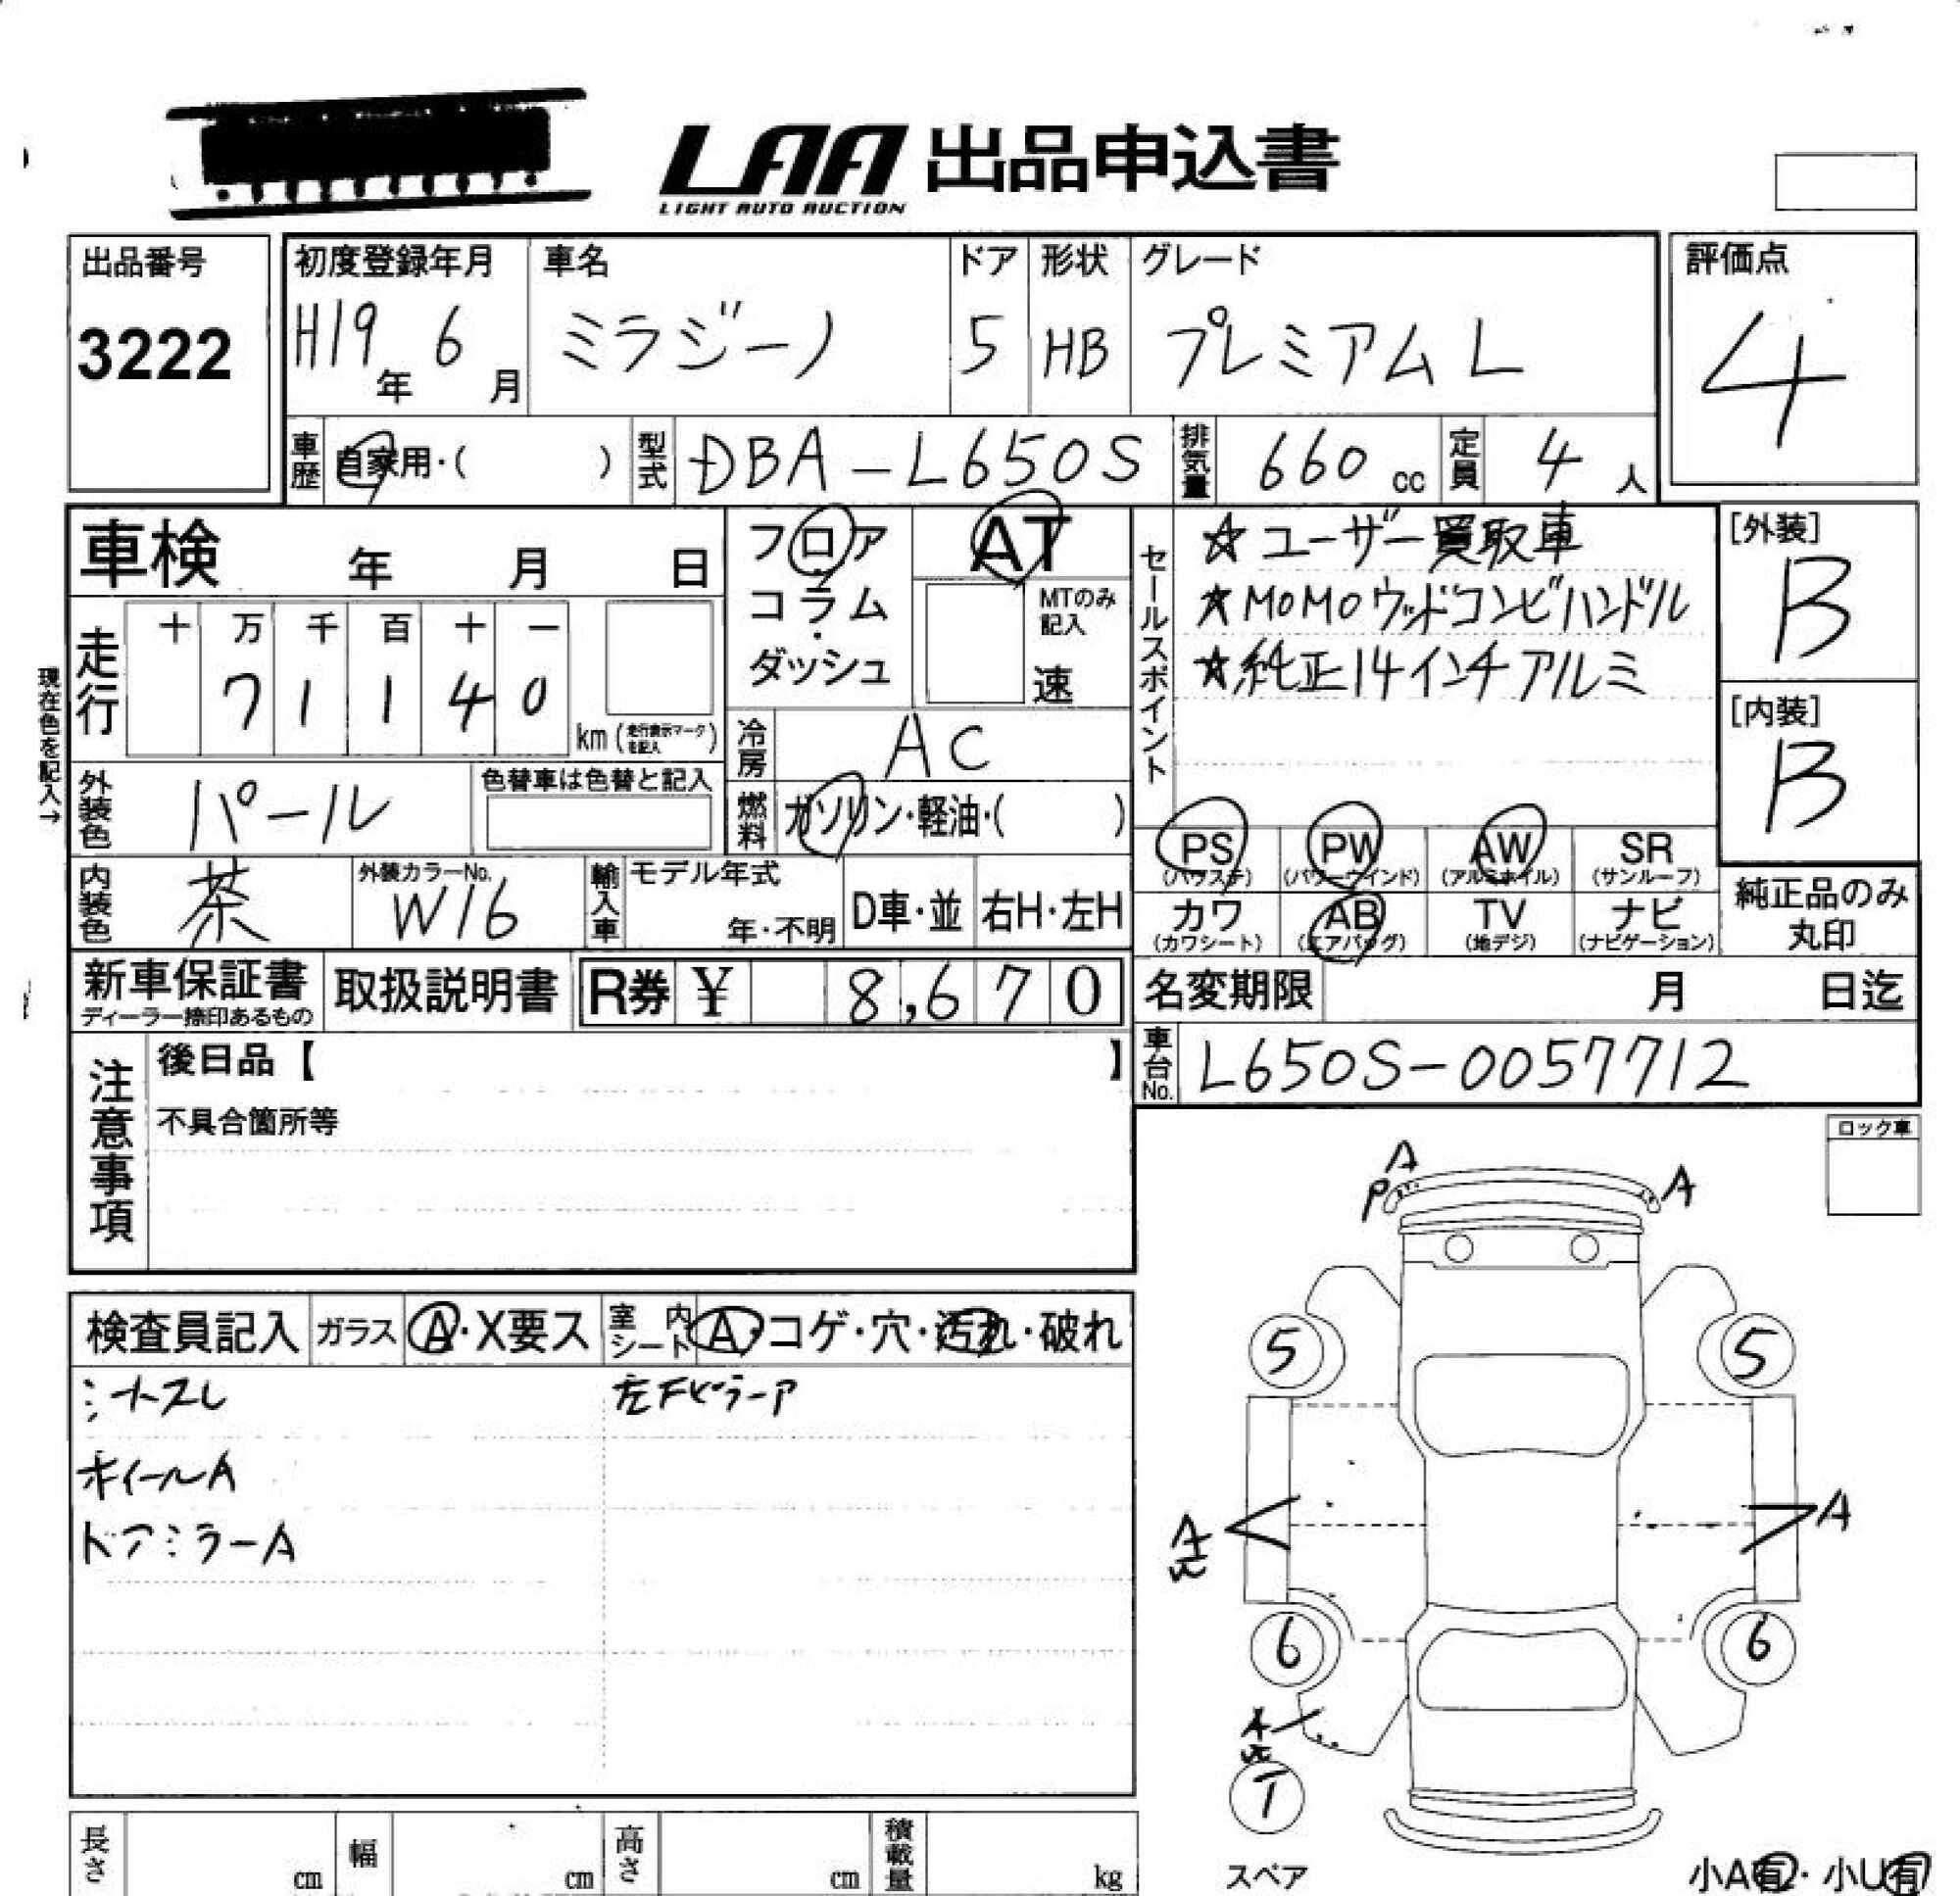 LAA 出品申込書
LIGHT AUTO AUCTION
出品番号
3222
初度登録年月
H19年 6月
車名
ミラジーノ
ドア
5
形状
HB
グレード
プレミアム L
評価点
4
車歴 自家用・( )
型式 DBA-L650S
排気量 660 cc
定員 4 人
車検 年 月 日
フロア・コラム・ダッシュ
AT
MTのみ記入
速
セールスポイント
☆ユーザー買取車
☆MOMOウッドコンビハンドル
☆純正14インチアルミ
[外装]
B
[内装]
B
現在色を記入→
走行
十 万 千 百 十 一
7 1 1 4 0
km (走行表示マークを記入)
冷房 AC
外装色 パール
色替車は色替と記入
燃料 ガソリン・軽油・( )
PS (パワステ)
PW (パワーウインド)
AW (アルミホイル)
SR (サンルーフ)
カワ (カワシート)
AB (エアバッグ)
TV (地デジ)
ナビ (ナビゲーション)
純正品のみ
丸印
内装色 茶
外装カラーNo.
W16
輸入車
モデル年式
年・不明
D車・並
右H・左H
新車保証書
ディーラー捺印あるもの
取扱説明書
R券 ¥ 8,670
名変期限 月 日迄
車台No. L650S-0057712
注意事項
後日品【 】
不具合箇所等
ロック車
A
P
A
検査員記入
ガラス A・X要ス
室内シート A・コゲ・穴・汚れ・破れ
ホイールA
ドアミラーA
5
5
A
A
6
6
スペア
長さ cm
幅 cm
高さ cm
積載量 kg
小A有・小U有